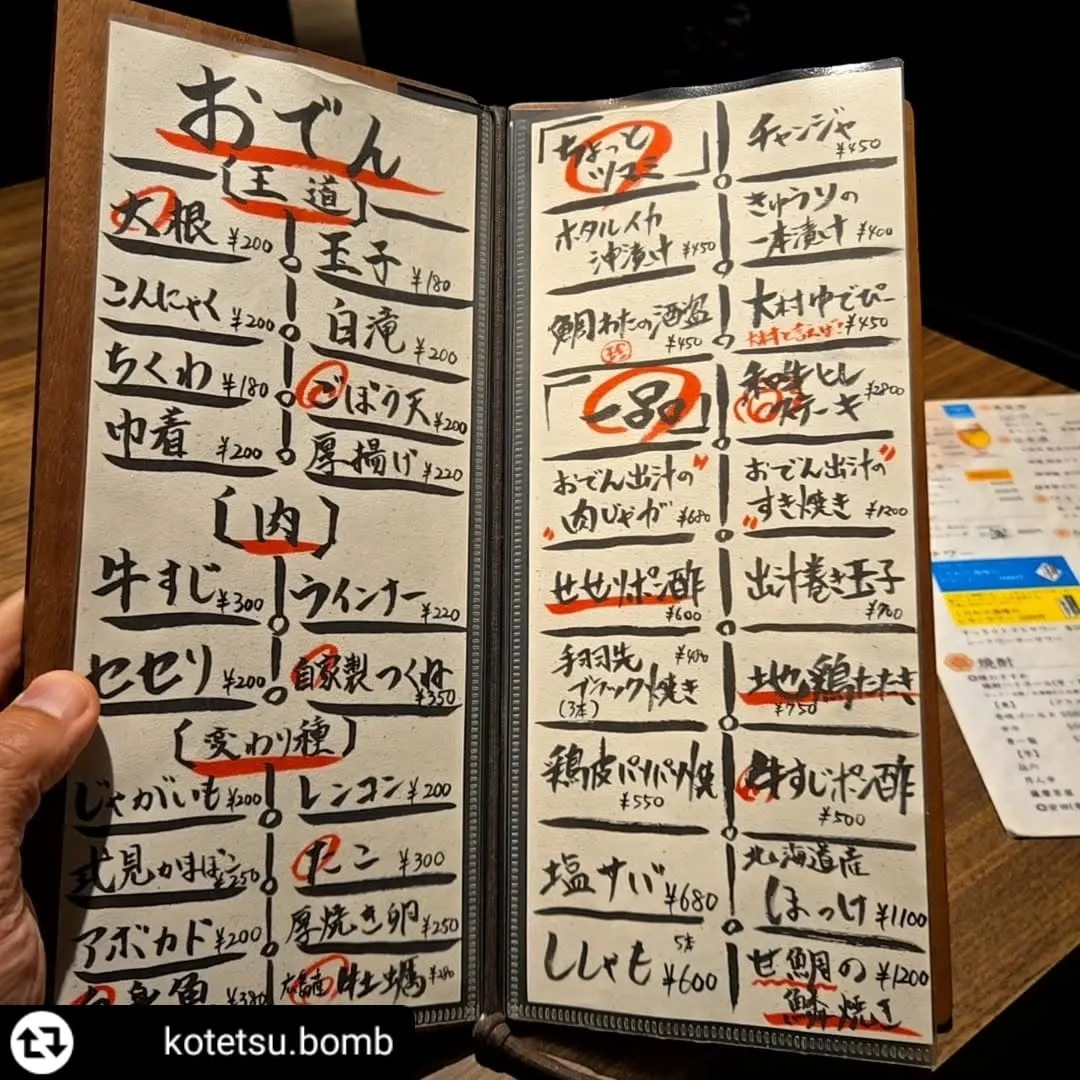 おでん
〔王道〕
大根 ¥200
玉子 ¥180
こんにゃく ¥200
白滝 ¥200
ちくわ ¥180
ごぼう天 ¥200
巾着 ¥200
厚揚げ ¥220
〔肉〕
牛すじ ¥300
ウインナー ¥220
セセリ ¥200
自家製つくね ¥350
〔変わり種〕
じゃがいも ¥200
レンコン ¥200
式見かまぼこ ¥250
たこ ¥300
アボカド ¥200
厚焼き卵 ¥250
¥380
広島産 牡蠣 ¥280
「ちょっと
ツマミ」
チャンジャ
¥450
ホタルイカ
沖漬け ¥450
きゅうりの
一本漬け ¥400
鯛わたの酒盗
¥450
大村ゆでぴー
大村と言えば! ¥450
「一品」
和牛ヒレ
ステーキ ¥2800
おでん出汁の
肉じゃが ¥680
おでん出汁の
すき焼き ¥1200
せせりポン酢
¥600
出汁巻き玉子
¥700
手羽先 ¥480
ブラック焼き
(3本)
地鶏たたき
¥750
鶏皮パリパリ焼
¥550
牛すじポン酢
¥500
塩サバ ¥680
北海道産
ほっけ ¥1100
ししゃも 5本
¥600
甘鯛の ¥1200
鱗焼き
焼酎
kotetsu.bomb